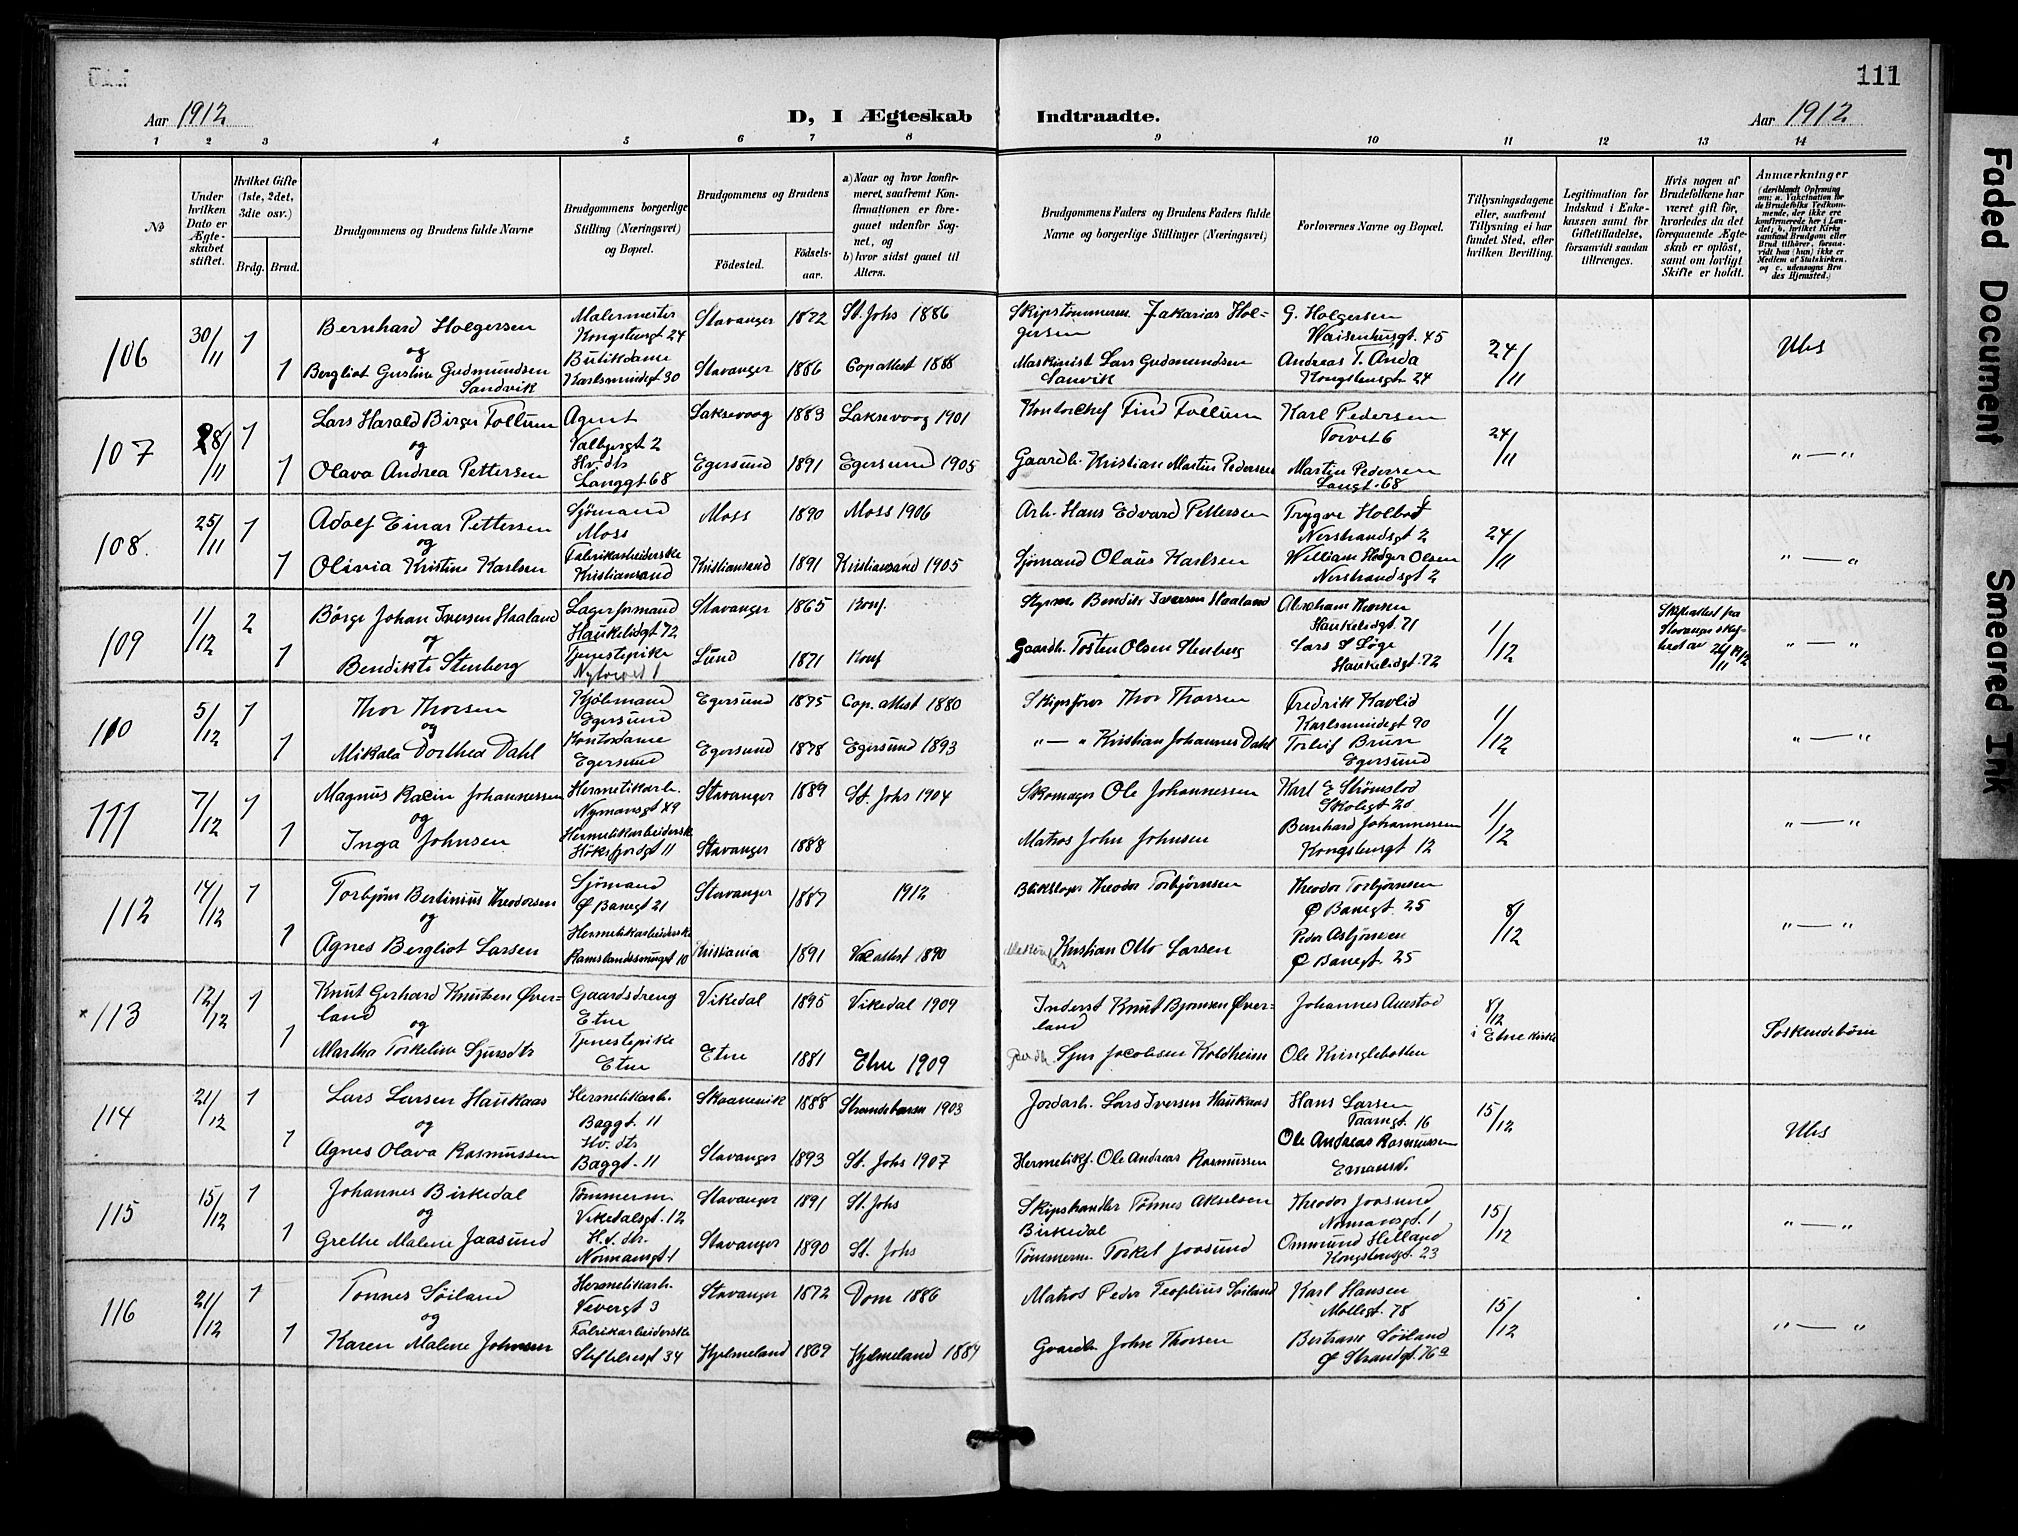 111
Aar 1912
D, I Ægteskab Indtraadte.
Aar 1912
1 2 3 4 5 6 7 8 9 10 11 12 13 14
No
Under hvilken Dato er Ægteskabet stiftet.
Hvilket Gifte (1ste, 2det, 3die osv.)
Brdg. Brud.
Brudgommens og Brudens fulde Navne
Brudgommens borgerlige Stilling (Næringsvei) og Bopæl.
Brudgommens og Brudens
Fødested.
Fødselsaar.
a) Naar og hvor konfirmeret, saafremt Konfirmationen er foregaaet udenfor Sognet, og
b) hvor sidst gaaet til Alters.
Brudgommens Faders og Brudens Faders fulde Navne og borgerlige Stillinger (Næringsvei)
Forlovernes Navne og Bopæl.
Tillysningsdagene eller, saafremt Tillysning ei har fundet Sted, efter hvilken Bevilling.
Legitimation for Indskud i Enkekassen samt for Giftetilladelse, forsaavidt saadan tiltrænges.
Hvis nogen af Brudefolkene har været gift før, hvorledes da det foregaaende Ægteskab er opløst, samt om lovligt Skifte er holdt.
Anmærkninger
(deriblandt Oplysning om: a. Vaccination for de Brudefolks Vedkommende, der ikke ere konfirmerede her i Landet; b. hvilket Kirkesamfund Brudgom eller Brud tilhører, forsaavidt han (hun) ikke er Medlem af Statskirken, og c. udensogns Brudes Hjemsted.)
106 30/11 1 Bernhard Holgersen Malermester Kongsbergt 24 Stavanger 1872 St. Johs 1886 Skipstømmerm Zakarias Holgersen G. Holgersen Waisenhusgt. 45 24/11 Uhs
og
1 Bergliot Gustine Gudmundsen Sandvik Butikdame Karlsmindegt 30 Stavanger 1886 Cop attest 1888 Maskinist Lars Gudmundsen Sanvik Andreas T. Anda Kongsbergt 24
107 28/11 1 Lars Harald Birger Follum Agent Valbergt 2 Laksevoog 1883 Laksevoog 1901 Kontorchef Find Follum Karl Pedersen Torvet 6 24/11 "—"
og
1 Olava Andrea Pettersen Hv. dtr Langgt 68 Egersund 1891 Egersund 1905 Gaardb. Kristian Martin Pedersen Martin Pedersen Langt. 68
108. 25/11 1 Adolf Einar Pettersen Sjømand Moss Moss 1890 Moss 1906 Arb. Hans Edvard Pettersen Trygve Nerstrandsgt 2 24/11 "—"
og
1 Olivia Kristine Karlsen Fabrikarbeiderske Kristiansand Kristiansand 1891 Kristiansand 1905 Sjømand Olaus Karlsen William Hedger Olsen Nerstrandsgt 2
109 1/12 2 Børge Johan Iversen Haaland Lagerformand Haukelidgt 72 Stavanger 1865 Konf. Bendik Iversen Haaland Abraham Thorsen Haukelidgt. 71 1/12 Skifteattest fra Stavanger skifteret av 26/11 1912 "—"
og
1 Bendikte Stenberg Tjenestepike Nytorvet 1 Lund 1871 Konf Gaardb. Tosten Olsen Stenberg Lars S Løge Haukelidgt. 72
110 5/12 1 Thor Thorsen Kjøbmand Egersund Egersund 1875 Cop. attest 1880 Skipsfører Thor Thorsen Fredrik Havlid Karlsmindegt 90 1/12 "—"
og
1 Mikala Dorthea Dahl Kontordame Egersund Egersund 1878 Egersund 1893 "—" Kristian Johannes Dahl Torleif Brun Egersund
111 7/12 1 Magnus Racin Johannessen Hermetikarb. Nymansgt 49 Stavanger 1889 St. Johs 1904 Skomager Ole Johannessen Karl E Strømstod Skolegt 20 1/12 "—"
og
1 Inga Johnsen Hermetikarbeiderske Høksfjordgt 11 Stavanger 1888 Matros John Johnsen Bernhard Johannessen Kongsbergt 12
112 14/12 1 Torbjørn Bertinius Theodorsen Sjømand Ø Banegt 21 Stavanger 1887 1912 Blikslager Theodor Torbjørnsen Theodor Torbjørnsen Ø Banegt. 25 8/12 "—"
og
1 Agnes Bergliot Larsen Hermetikarbeiderske Ramslandssmuget 10 Kristiania 1891 Vac attest 1890 Kristian Otto Larsen Peder Asbjørnsen Ø Banegt. 25
× 113 12/12 1 Knut Gerhard Knutsen Øverland Gaardsdreng Etne Vikedal 1895 Vikedal 1909 Inderst Knut Bjørnsen Øverland Johannes Auestad 8/12 i Etne kirke Søskendebørn
og
1 Martha Torkeline Sjursdtr Tjenestepike Etne Etne 1881 Etne 1909 Gaardb. Sjur Jacobsen Koldheim Ole Kringlebotten
114 21/12 1 Lars Larsen Haukaas Hermetikarb. Baggt. 11 Skaanevik 1888 Strandebarm 1903 Jordarb. Lars Iversen Haukaas Hans Larsen Taarngt. 16 15/12 Uhs
og
1 Agnes Olava Rasmussen Hv. dtr Baggt. 11 Stavanger 1893 St. Johs 1907 Hermetikf. Ole Andreas Rasmussen Ole Andreas Rasmussen
115 15/12 1 Johannes Birkedal Tømmerm. Vikedalsgt. 12 Stavanger 1891 St. Johs Skipshandler Tønnes Akselsen Birkedal Theodor Jaasund Normansgt. 1 15/12 "—"
og
1 Grethe Malene Jaasund H.v. dtr. Normansgt 1 Stavanger 1890 St. Johs Tømmerm. Torkel Jaasund Ommund Helland Kongsbergt. 23
116 21/12 1 Tønnes Søiland Hermetikarb. Vevergt 3 Stavanger 1872 Dom 1886 Matros Peder Teoplius Søiland Karl Hansen Møllegt. 78 15/12 "—"
og
1 Karen Malene Johnsen Fabrikarbeiderske Stiftelsesgt 34 Hjelmeland 1869 Hjelmeland 1884 Gaardb. John Thorsen Bertram Søiland Ø Strandgt. 76a
Faded Document
Smeared Ink